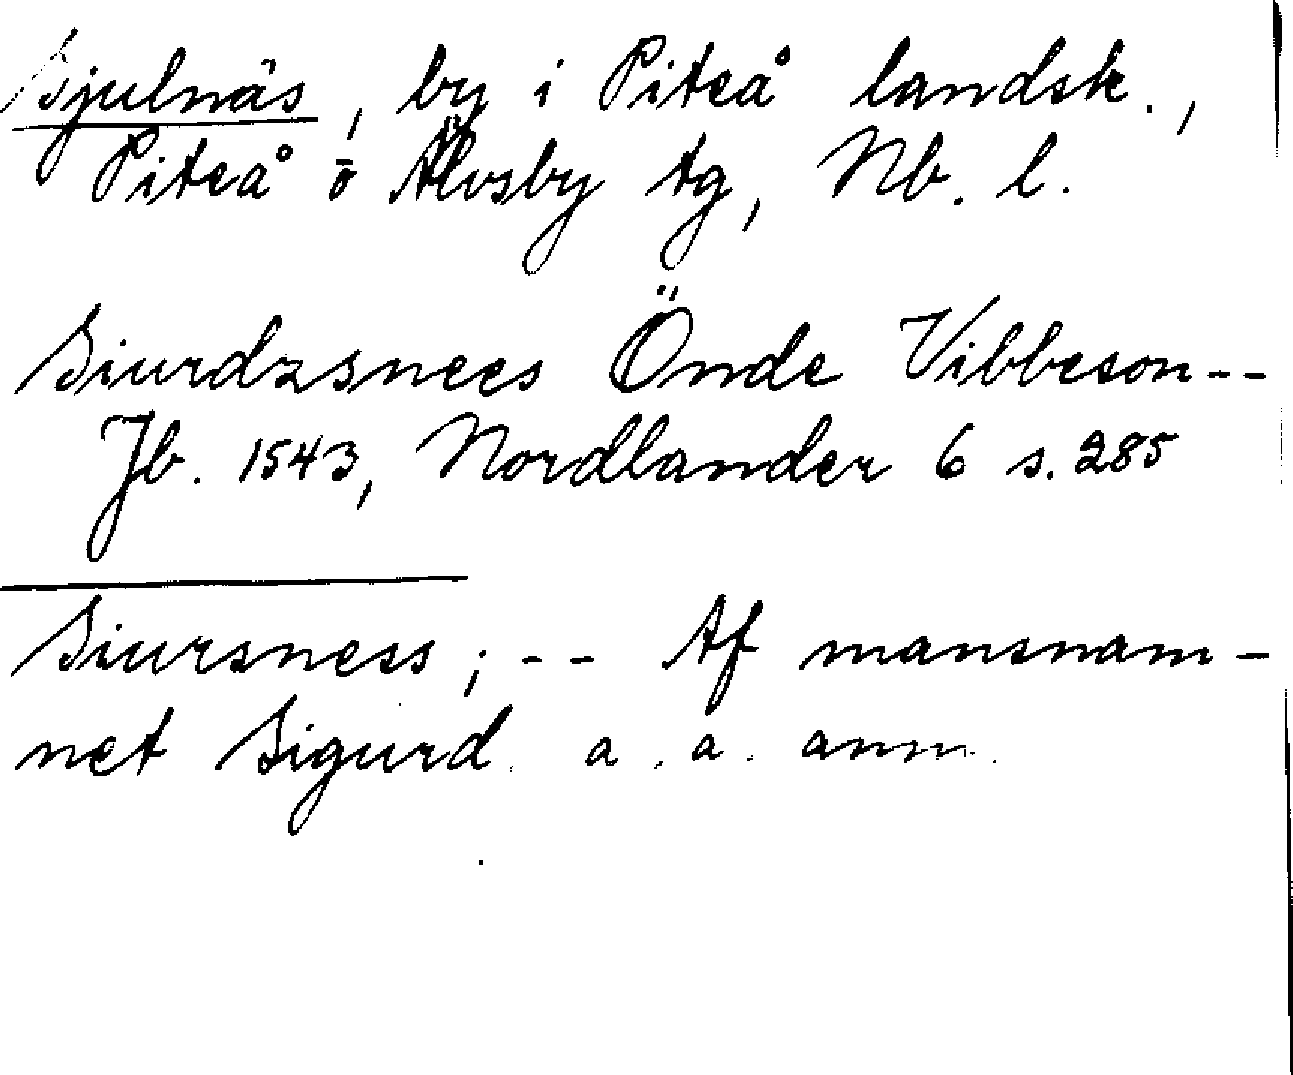 Sjulnäs, by i Piteå landsk.,
Piteå o Älvsby tg, Nb. l.
Siurdzsnees Önde Vibbeson--
Jb. 1543, Nordlander 6 s. 285
Siursness; -- Af mansnam-
net Sigurd. a. a. anm.